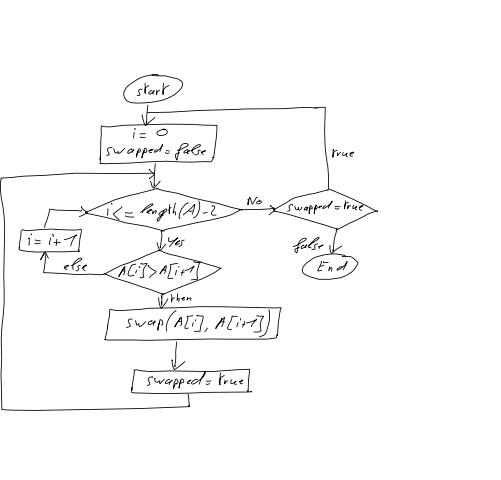 start
i = 0
swapped = false
true
i <= length(A)-2
No
swapped = true
i = i+1
Yes
false
else
A[i]>A[i+1]
End
then
swap(A[i], A[i+1])
swapped = true